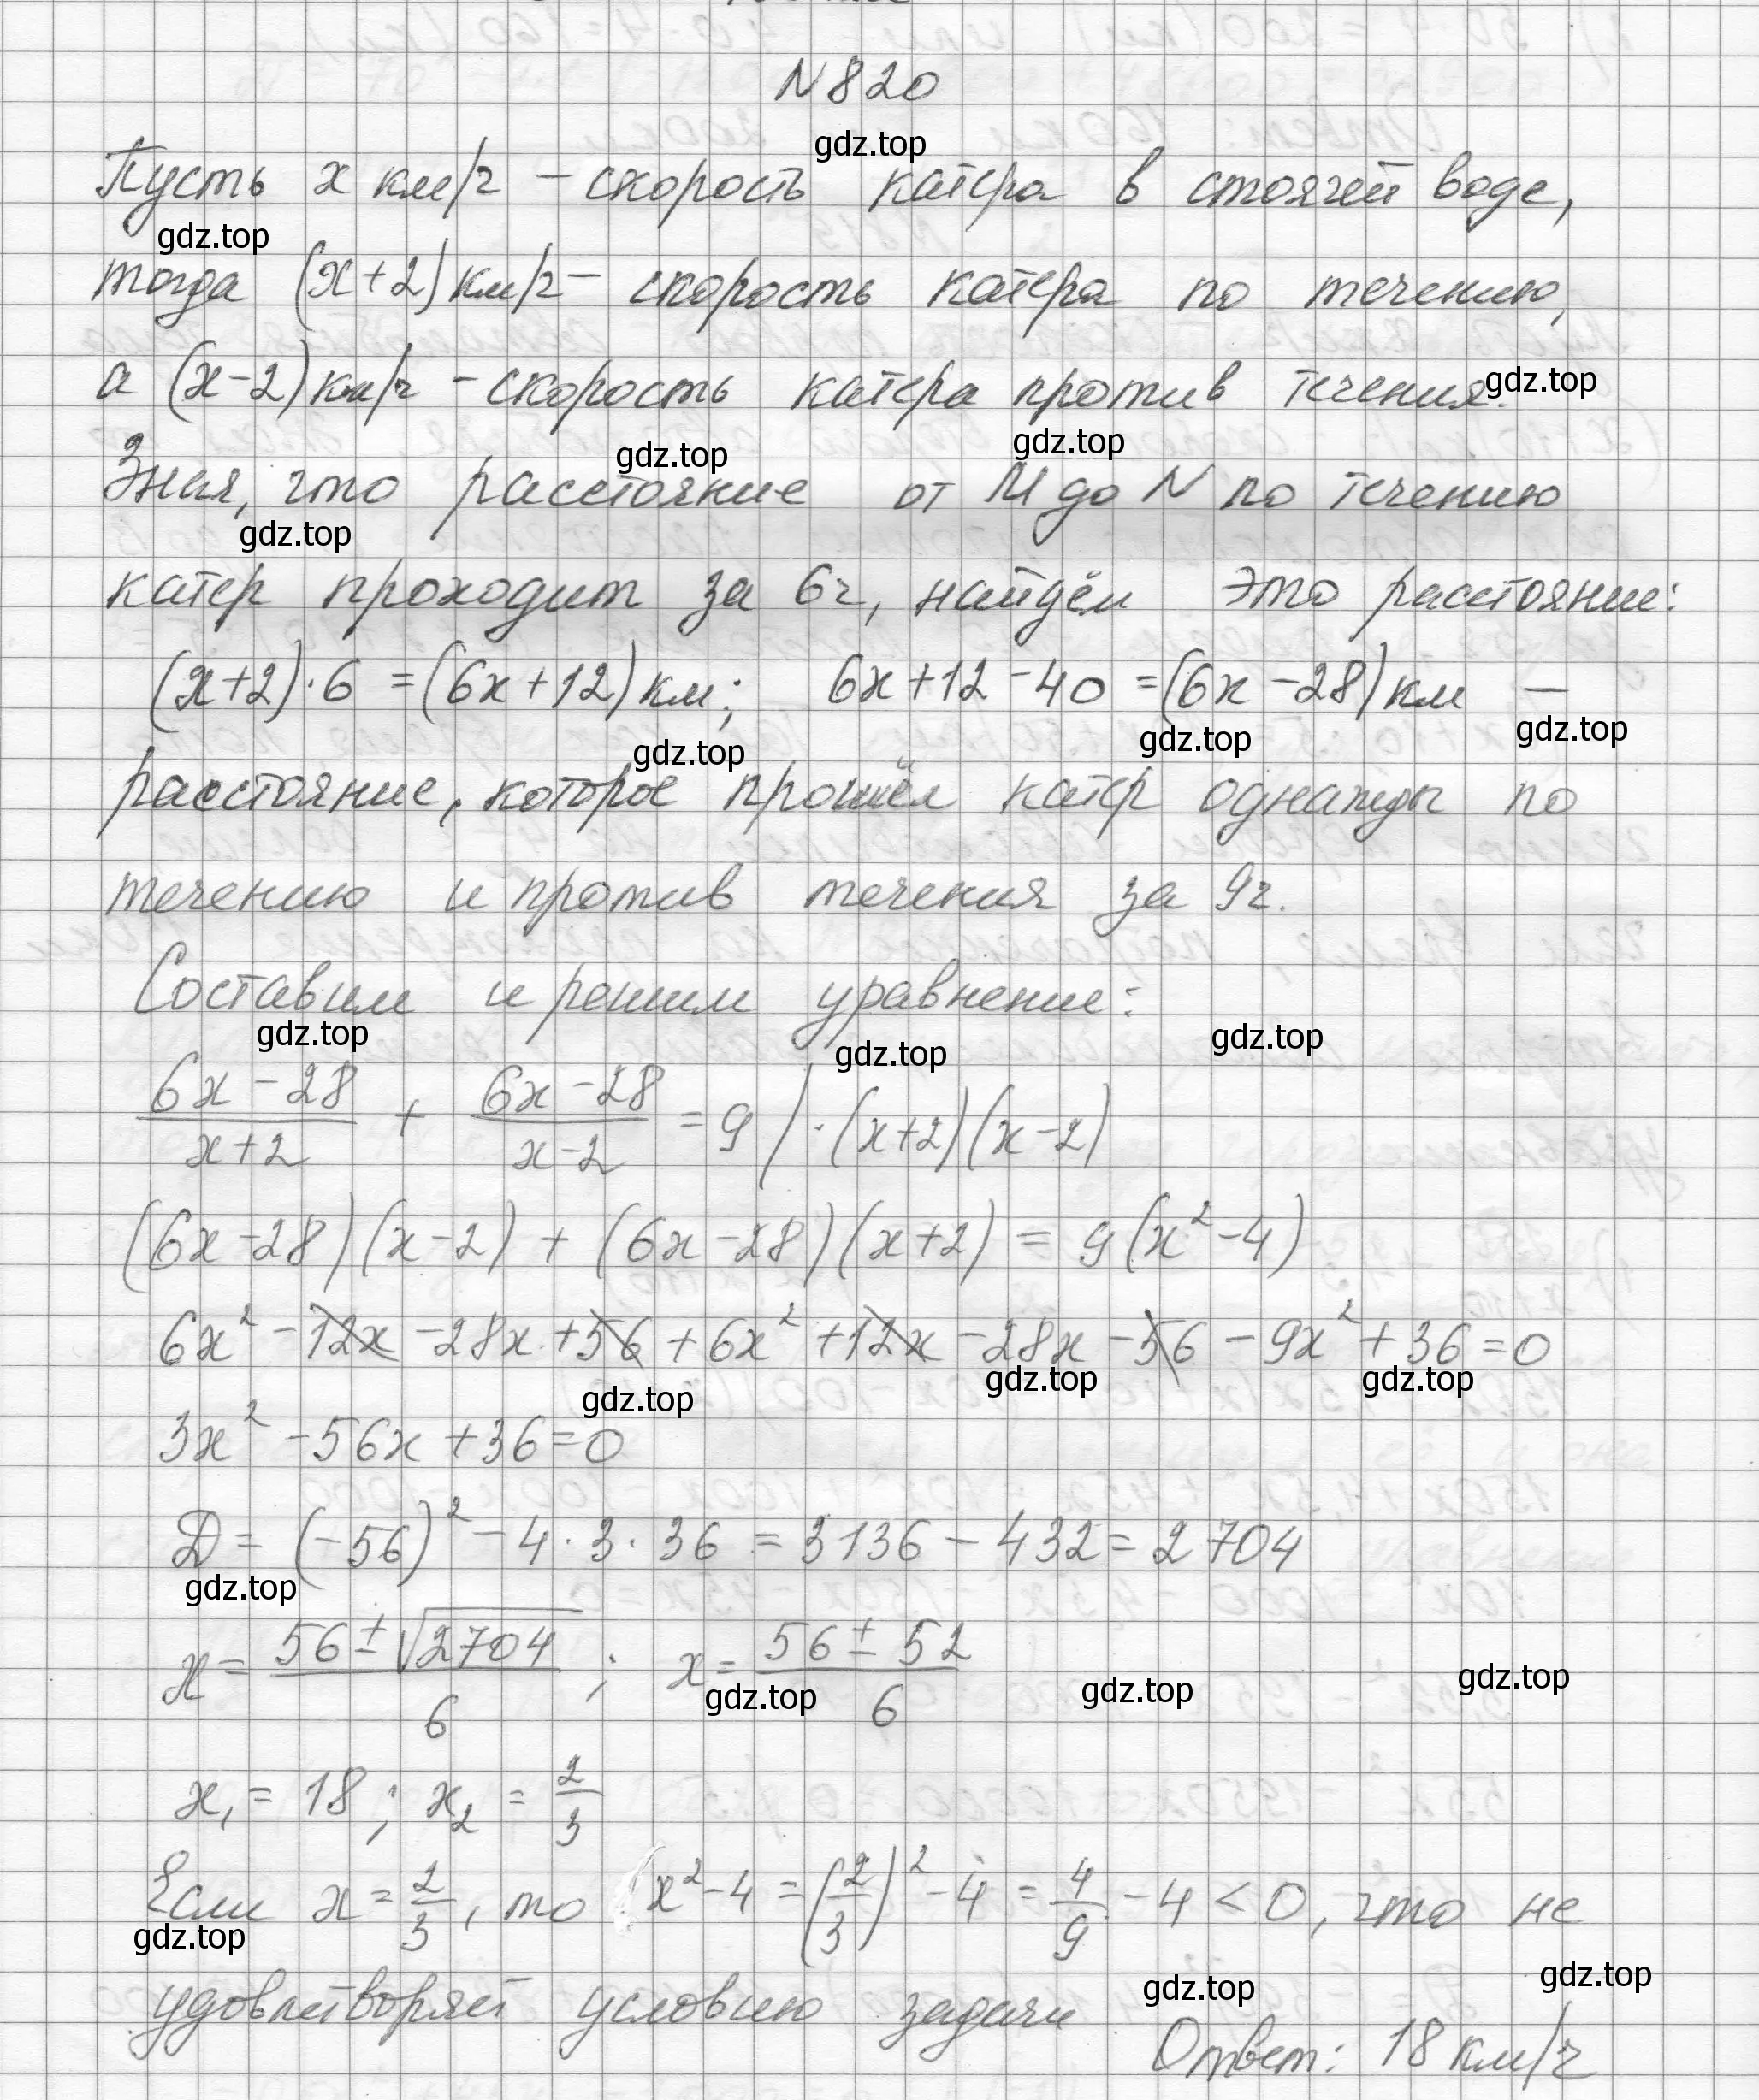 N 820
gdz.top
Пусть x км/ч – скорость катера в стоячей воде,
gdz.top
тогда (x+2) км/ч – скорость катера по течению,
а (x-2) км/ч – скорость катера против течения.
gdz.top
gdz.top gdz.top
Зная, что расстояние от M до N по течению
gdz.top
катер проходит за 6ч, найдём это расстояние:
(x+2)·6 = (6x+12) км; 6x+12-40 = (6x-28) км –
gdz.top gdz.top gdz.top
расстояние, которое прошёл катер однажды по
течению и против течения за 9ч.
Составим и решим уравнение:
gdz.top gdz.top gdz.top
(6x-28)/(x+2) + (6x-28)/(x-2) = 9 / ·(x+2)(x-2)
(6x-28)(x-2) + (6x-28)(x+2) = 9(x²-4)
6x² - 12x - 28x + 56 + 6x² + 12x - 28x - 56 - 9x² + 36 = 0
gdz.top gdz.top gdz.top
3x² - 56x + 36 = 0
D = (-56)² - 4·3·36 = 3136 - 432 = 2704
gdz.top
x = (56 ± √2704)/6 ; x = (56 ± 52)/6
gdz.top gdz.top gdz.top
x₁ = 18 ; x₂ = 2/3
Если x = 2/3, то x² - 4 = (2/3)² - 4 = 4/9 - 4 < 0, что не
gdz.top
удовлетворяет условию задачи
gdz.top gdz.top
Ответ: 18 км/ч